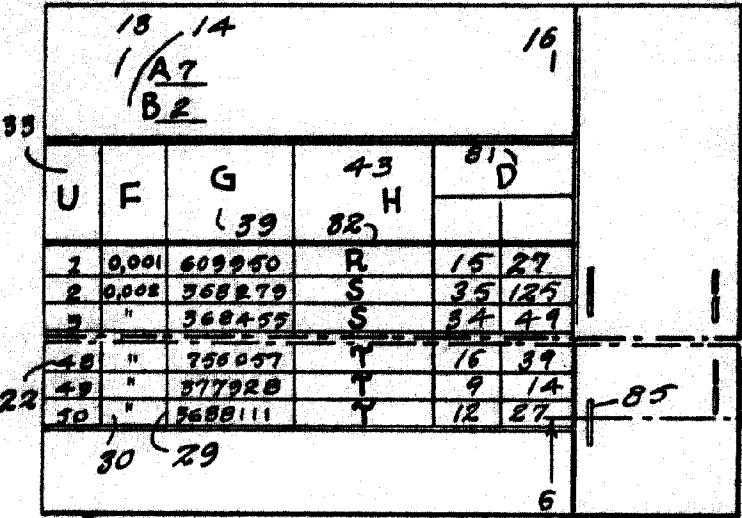 13 14
1 A 7
B 2
16
33
U F G 43 H 81 D
39 82
1 0,001 609950 R 15 27
2 0,002 368279 S 35 125
3 " 368455 S 34 49
48 " 756057 T 16 39
49 " 377928 T 9 14
50 " 3688111 T 12 27
22
85
30 29
6